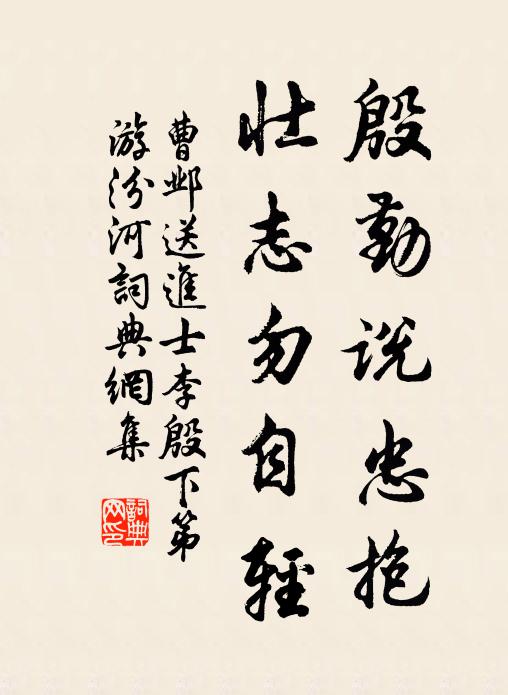 殷勤説忠抱
壮志勿自輕
曹邺送進士李殷下第
游汾河詞典網集
詞典
网印